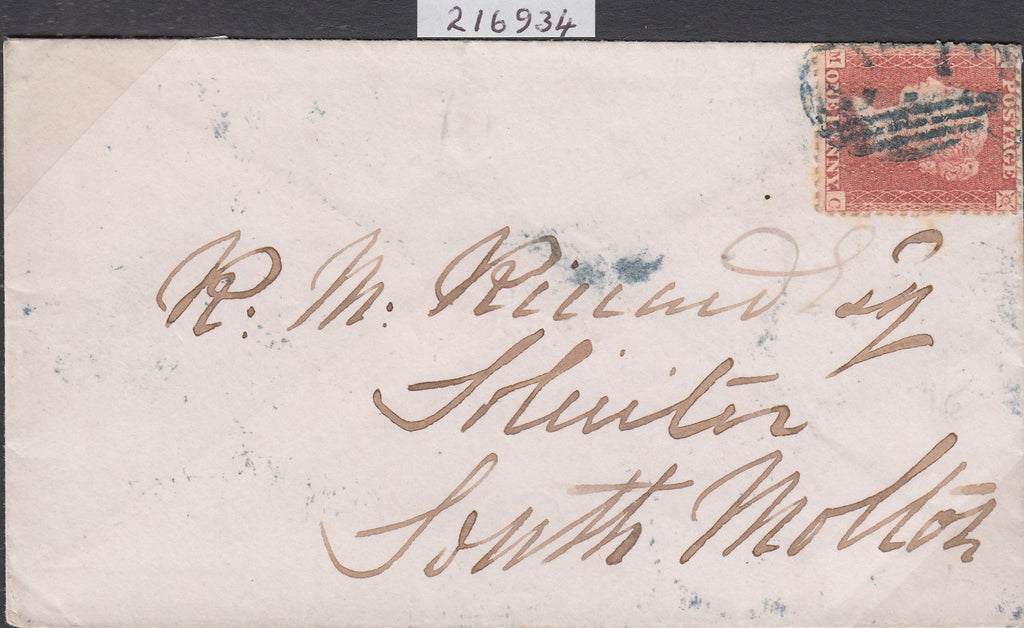 216934
POSTAGE
ONE PENNY
M C
R. M. Riccard Esq
Solicitor
South Molton